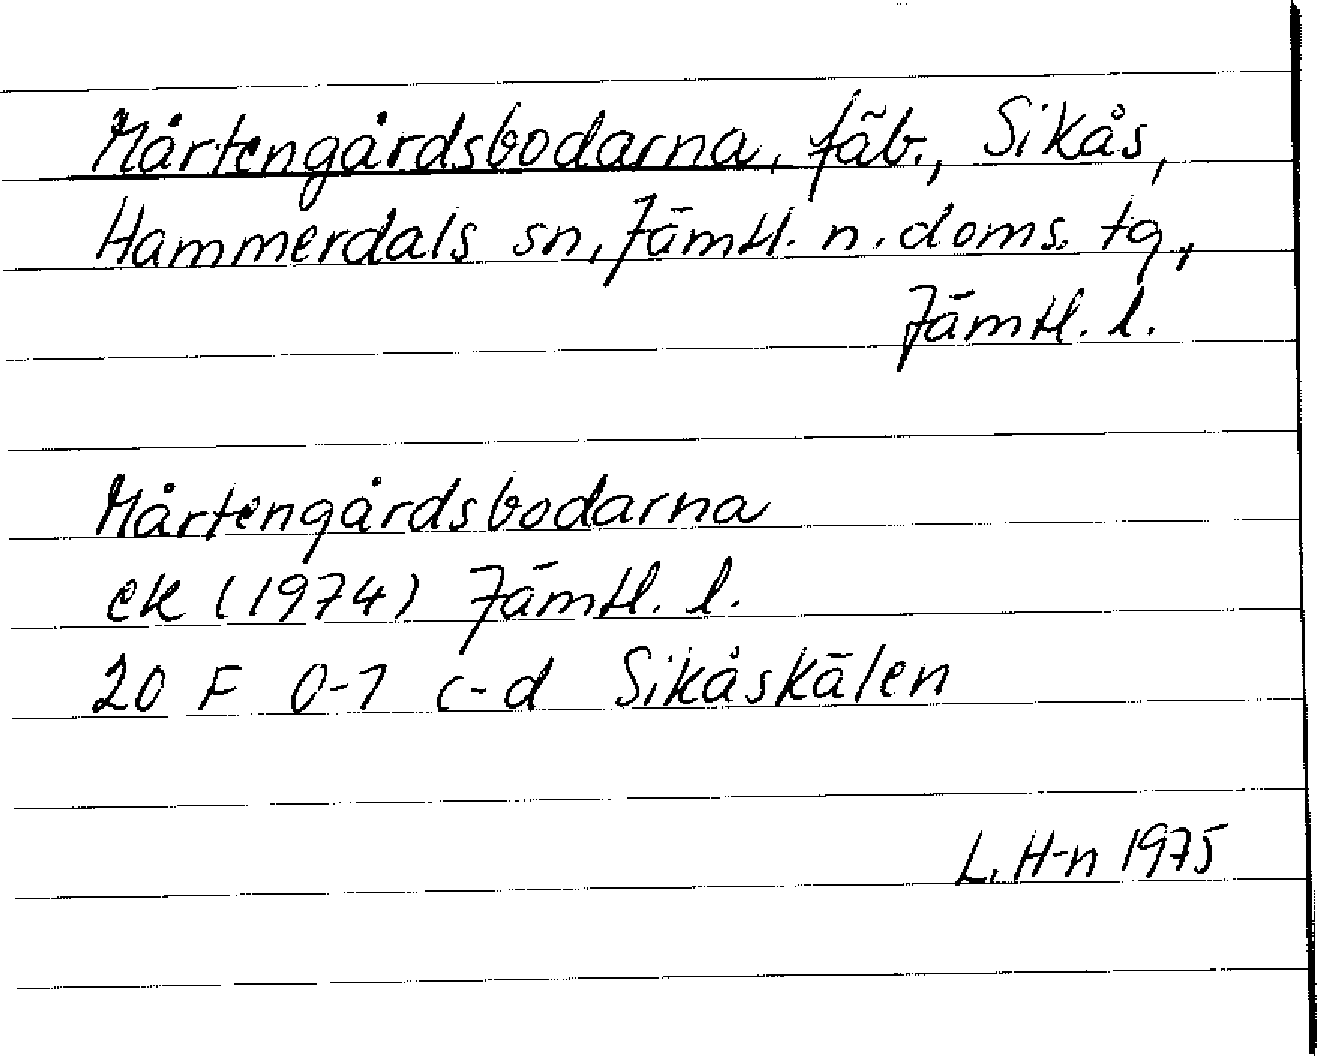 Mårtengårdsbodarna, fäb., Sikås,
Hammerdals sn, Jämtl. n. doms. tg,
Jämtl. l.
Mårtengårdsbodarna
ek (1974) Jämtl. l.
20 F 0-1 c-d Sikåskälen
L. H-n 1975